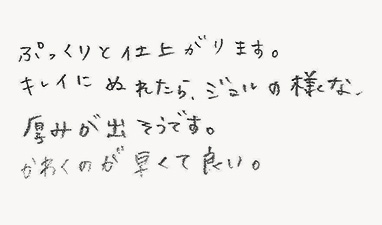 ぷっくりと仕上がります。
キレイにぬれたら、ジェルの様な、
厚みが出そうです。
かわくのが早くて良い。